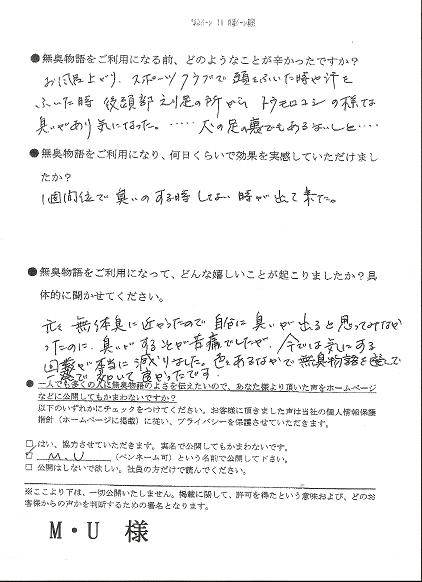 ●無臭物語をご利用になる前、どのようなことが辛かったですか?
お風呂上がり、スポーツクラブで頭をふいた時や汗を
ふいた時 後頭部えり足の所から トウモロコシの様な
臭いがあり気になった。……犬の足の裏でもあるまいしと‥‥
●無臭物語をご利用になり、何日くらいで効果を実感していただけまし
たか?
1週間位で臭いのする時しない時が出て来た。
●無臭物語をご利用になって、どんな嬉しいことが起こりましたか?具
体的に聞かせてください。
元々 無体臭に近かったので 自分に臭いが出ると思ってみなか
ったのに、臭いがすることが苦痛でしたが、今では気にする
回数が本当に減りました。色々あるなかで無臭物語を選んで
● 一人でも多くの人に無臭物語のよさを伝えたいので、あなた様より頂いた声をホームページ
などに公開してもかまわないですか?
以下のいずれかにチェックをつけてください。お客様に頂きました声は当社の個人情報保護
指針(ホームページに掲載)に従い、プライバシーを保護させていただきます。
□はい、協力させていただきます。実名で公開してもかまわないです。
☑ M.U (ペンネーム可)という名前で公開して下さい。
□公開はしないで欲しい。社員の方だけで読んでください。
※ここより下は、一切公開いたしません。掲載に関して、許可を得たという意味および、どのお
客様からの声かを判断するための署名となります。
M・U 様